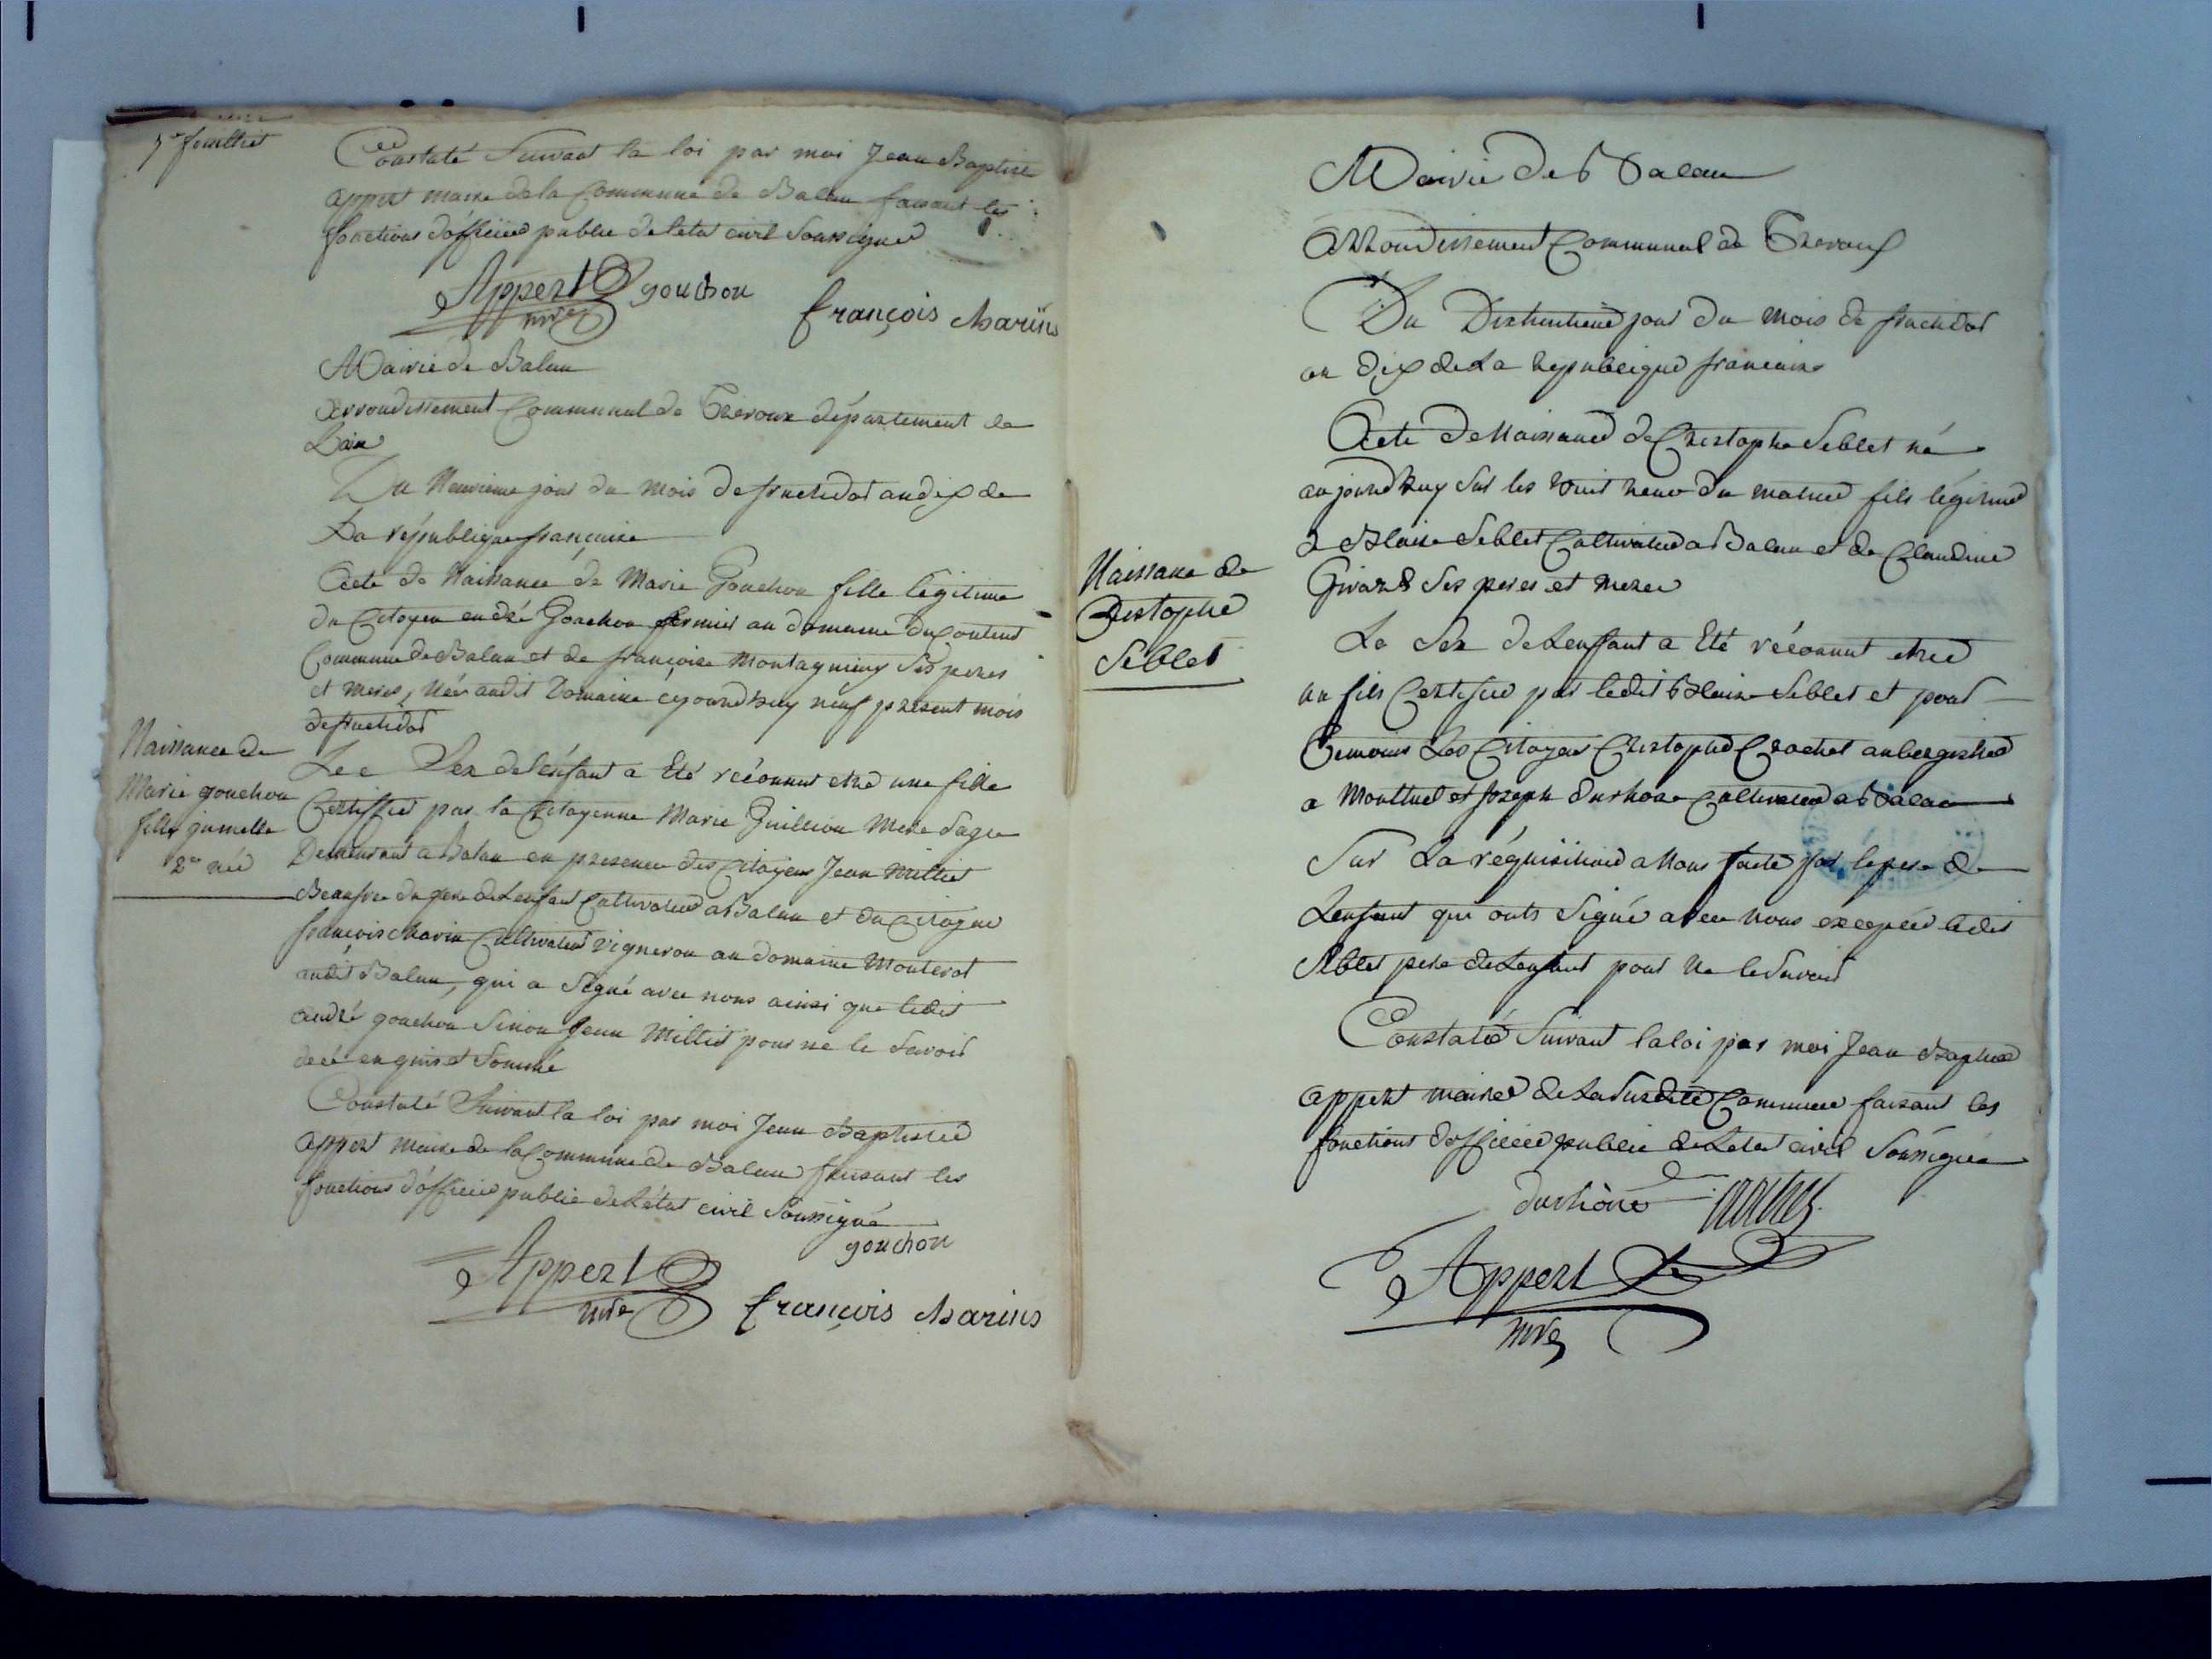 5e feuilliet
Constaté Suivant la loi par moi Jean Baptiste
appert maire de la Commune de Balan faisant les
fonctions d'officier public de l'etat civil Soussigné
Appert gouchon
mre
françois Marins
Mairie de Balan
Arrondissement Communal de Trevoux département de
Lain
Du Neuvieme jour du mois de fructidor an dix de
La république française
Acte de Naissance de Marie Gouchon fille légitime
du Citoyen andré Gouchon fermier au domaine du Content
Commune de Balan et de françoise Montagnieux Ses peres
et meres, Née audit Domaine cejourdhuy neuf present mois
de fructidor
Naissance de
Marie gouchon
fille jumelle
2e née
Le Sex de l'énfant a Eté réconnut etre une fille
Certiffiée par la Citoyenne Marie Guillion Mere Sage
Demeurant a Balan en presence des Citoyens Jean Milliet
Beaufrere du pere de Lenfant Cultivateur a Balan et du Citoyen
françois Marin Cultivateur vigneron au domaine Monterot
audit Balan, qui a Signé avec nous ainsi que ledit
andré gouchon Sinon Jean Milliet pour ne le Savoir
de ce enquis et Sommé
Constaté Suivant la loi par moi Jean Baptiste
appert Maire de la Commune de Balan faisant les
fonctions d'officier public de L'état civil Soussigné
gouchon
Appert
mre
françois Marins
Mairie de Balan
Arrondissement Communal de Trevoux
Du Dixhuitieme jour du mois de fructidor
an dix de La republique francaise
Acte de Naissance de Christophe Seblet né
aujourdhuy Sur les huit heure du matin fils légitime
a Blaise Seblet Cultivateur a Balan et de Claudine
Girard Ses peres et meres
Naissance de
Christophe
Seblet
Le Sex de Lenffant a Eté réconnut etre
un fils Certifié par ledit Blaise Seblet et pour
Temoins Les Citoyens Christophe Crochet aubergiste
a Montluel et Joseph Durhone Cultivateur a Balan
Sur La réquisition a Nous faite par le pere de
Lenfant qui onts Signé avec nous exceptée ledit
Seblet pere de Lenfant pour Ne le Savoir
Constaté Suivant la loi par moi Jean Baptiste
appert maire de La Susdite Commune faisant les
fonctions d'officier public de Letat civil Soussigné
durhône
Appert
mre